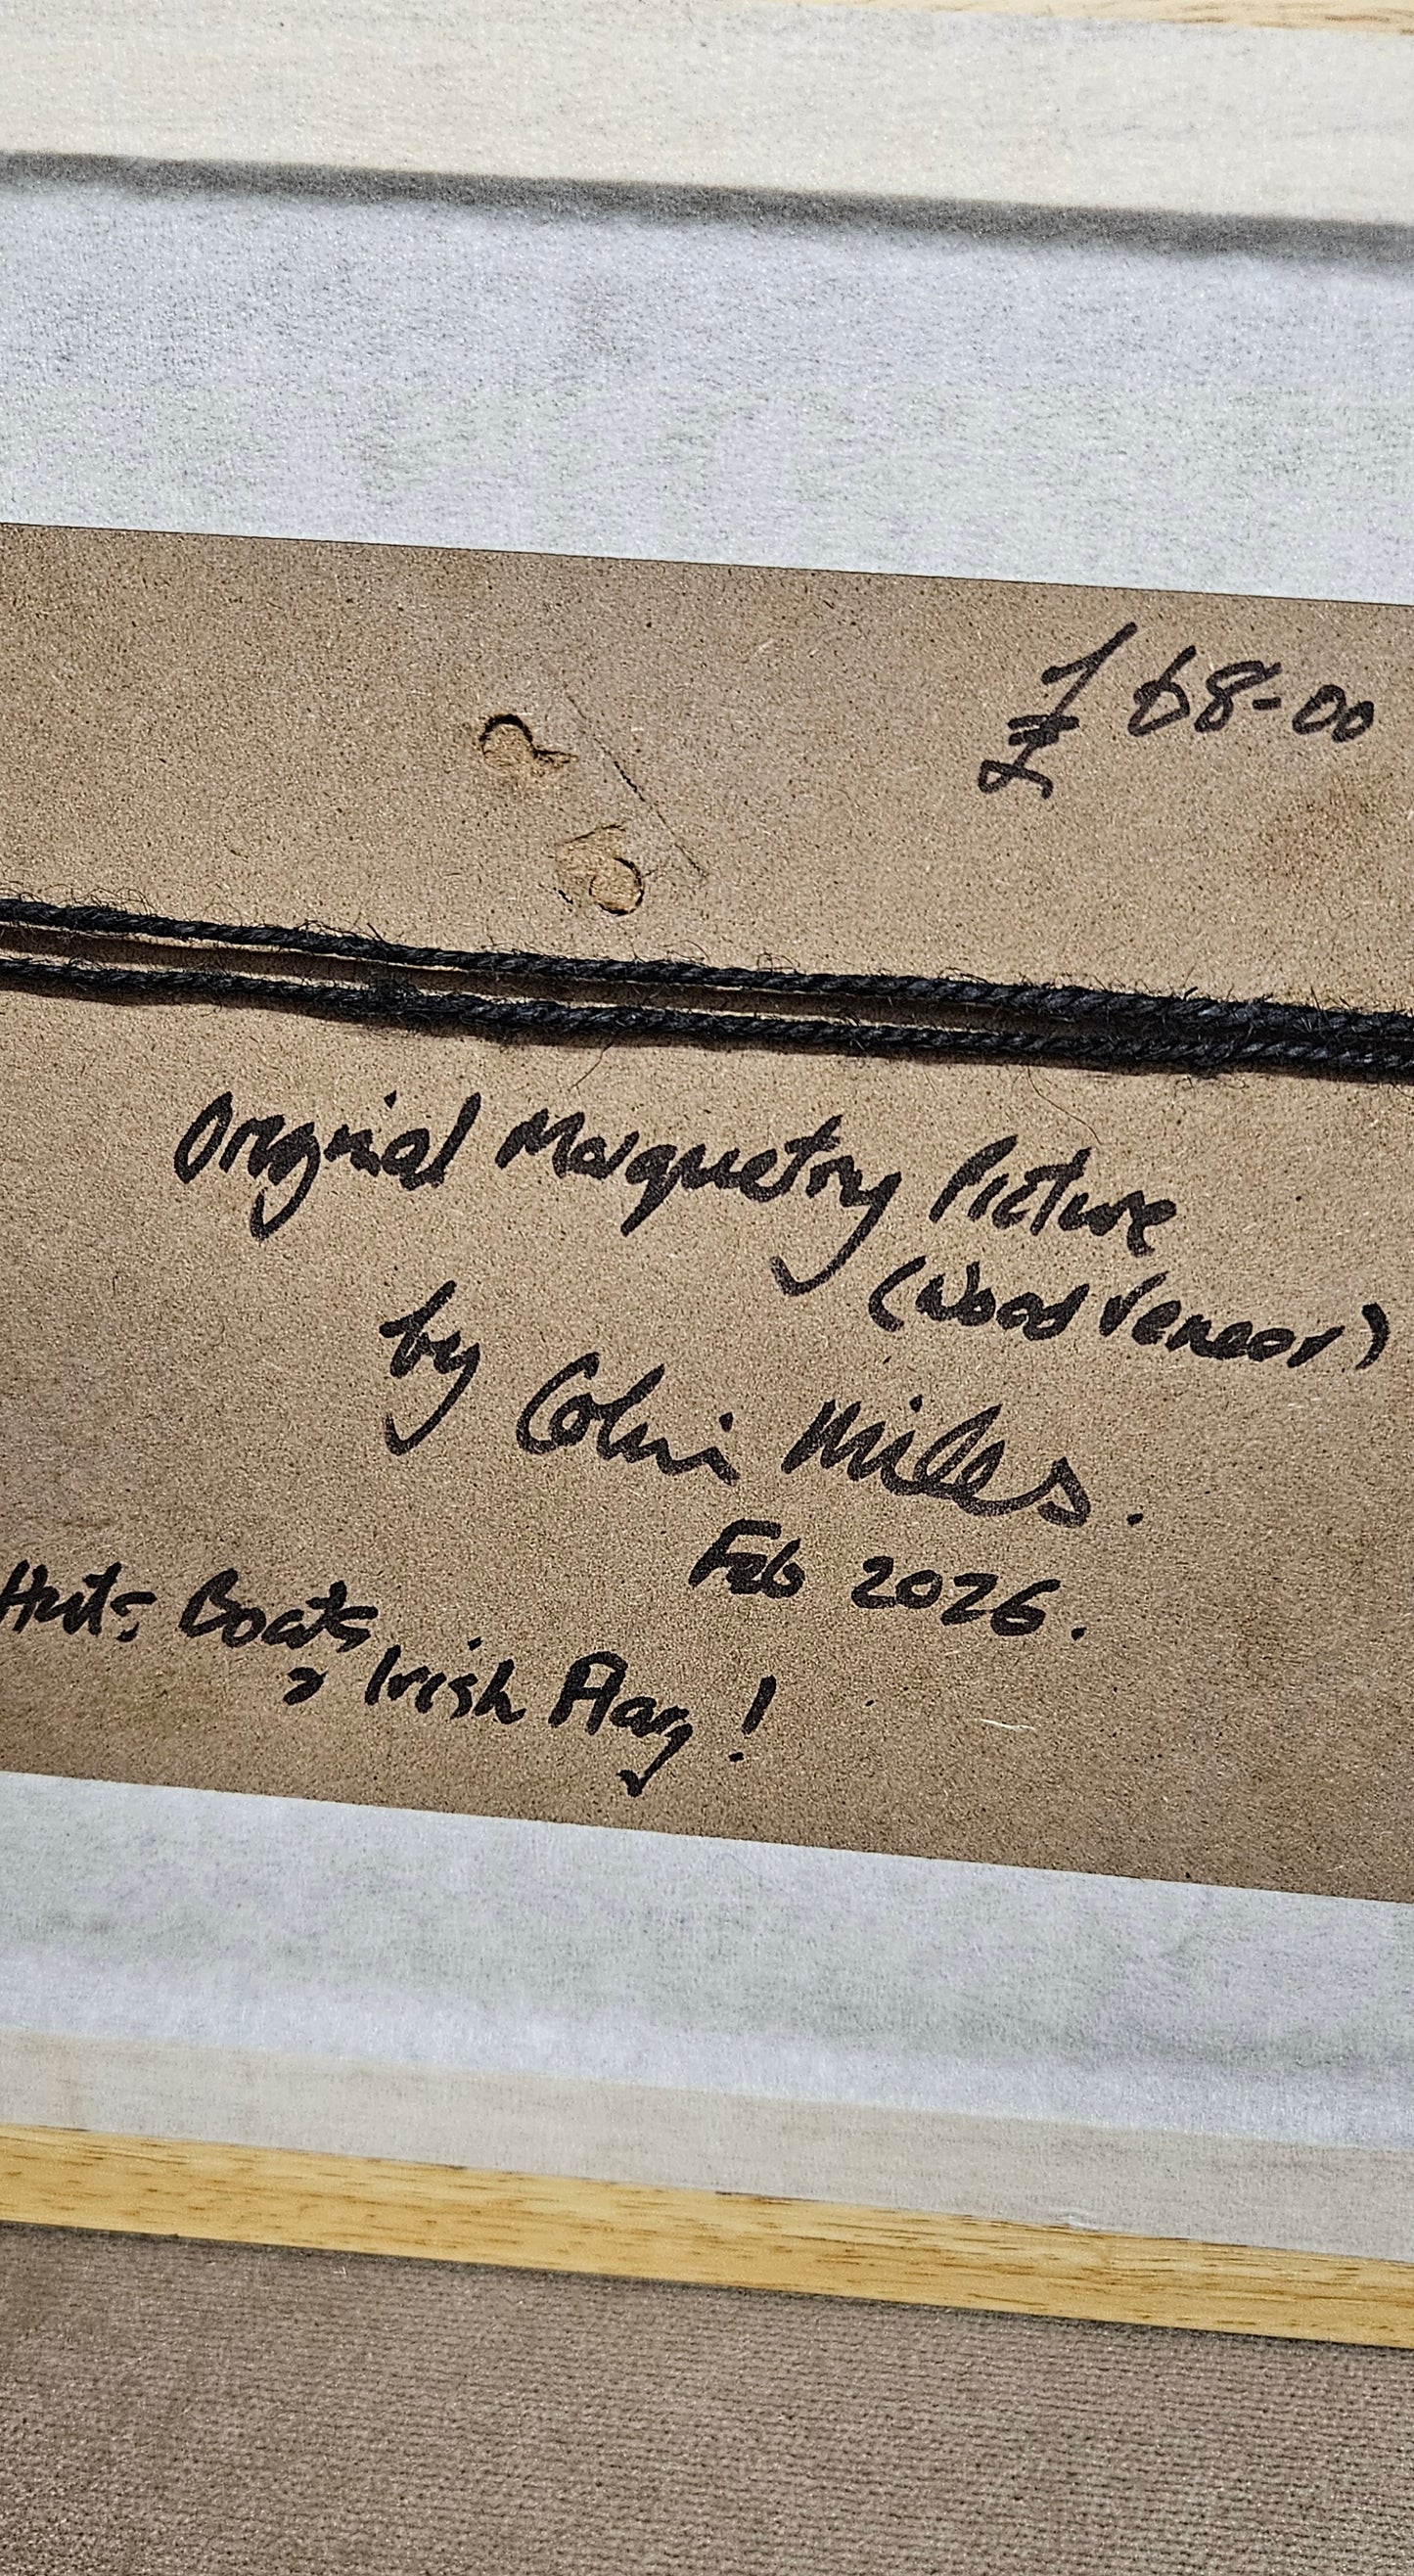 £68-00
Original Marquetry Picture
(Wood Veneer)
by Colin Miles.
Feb 2026.
Huts Boats
& Irish Flag!